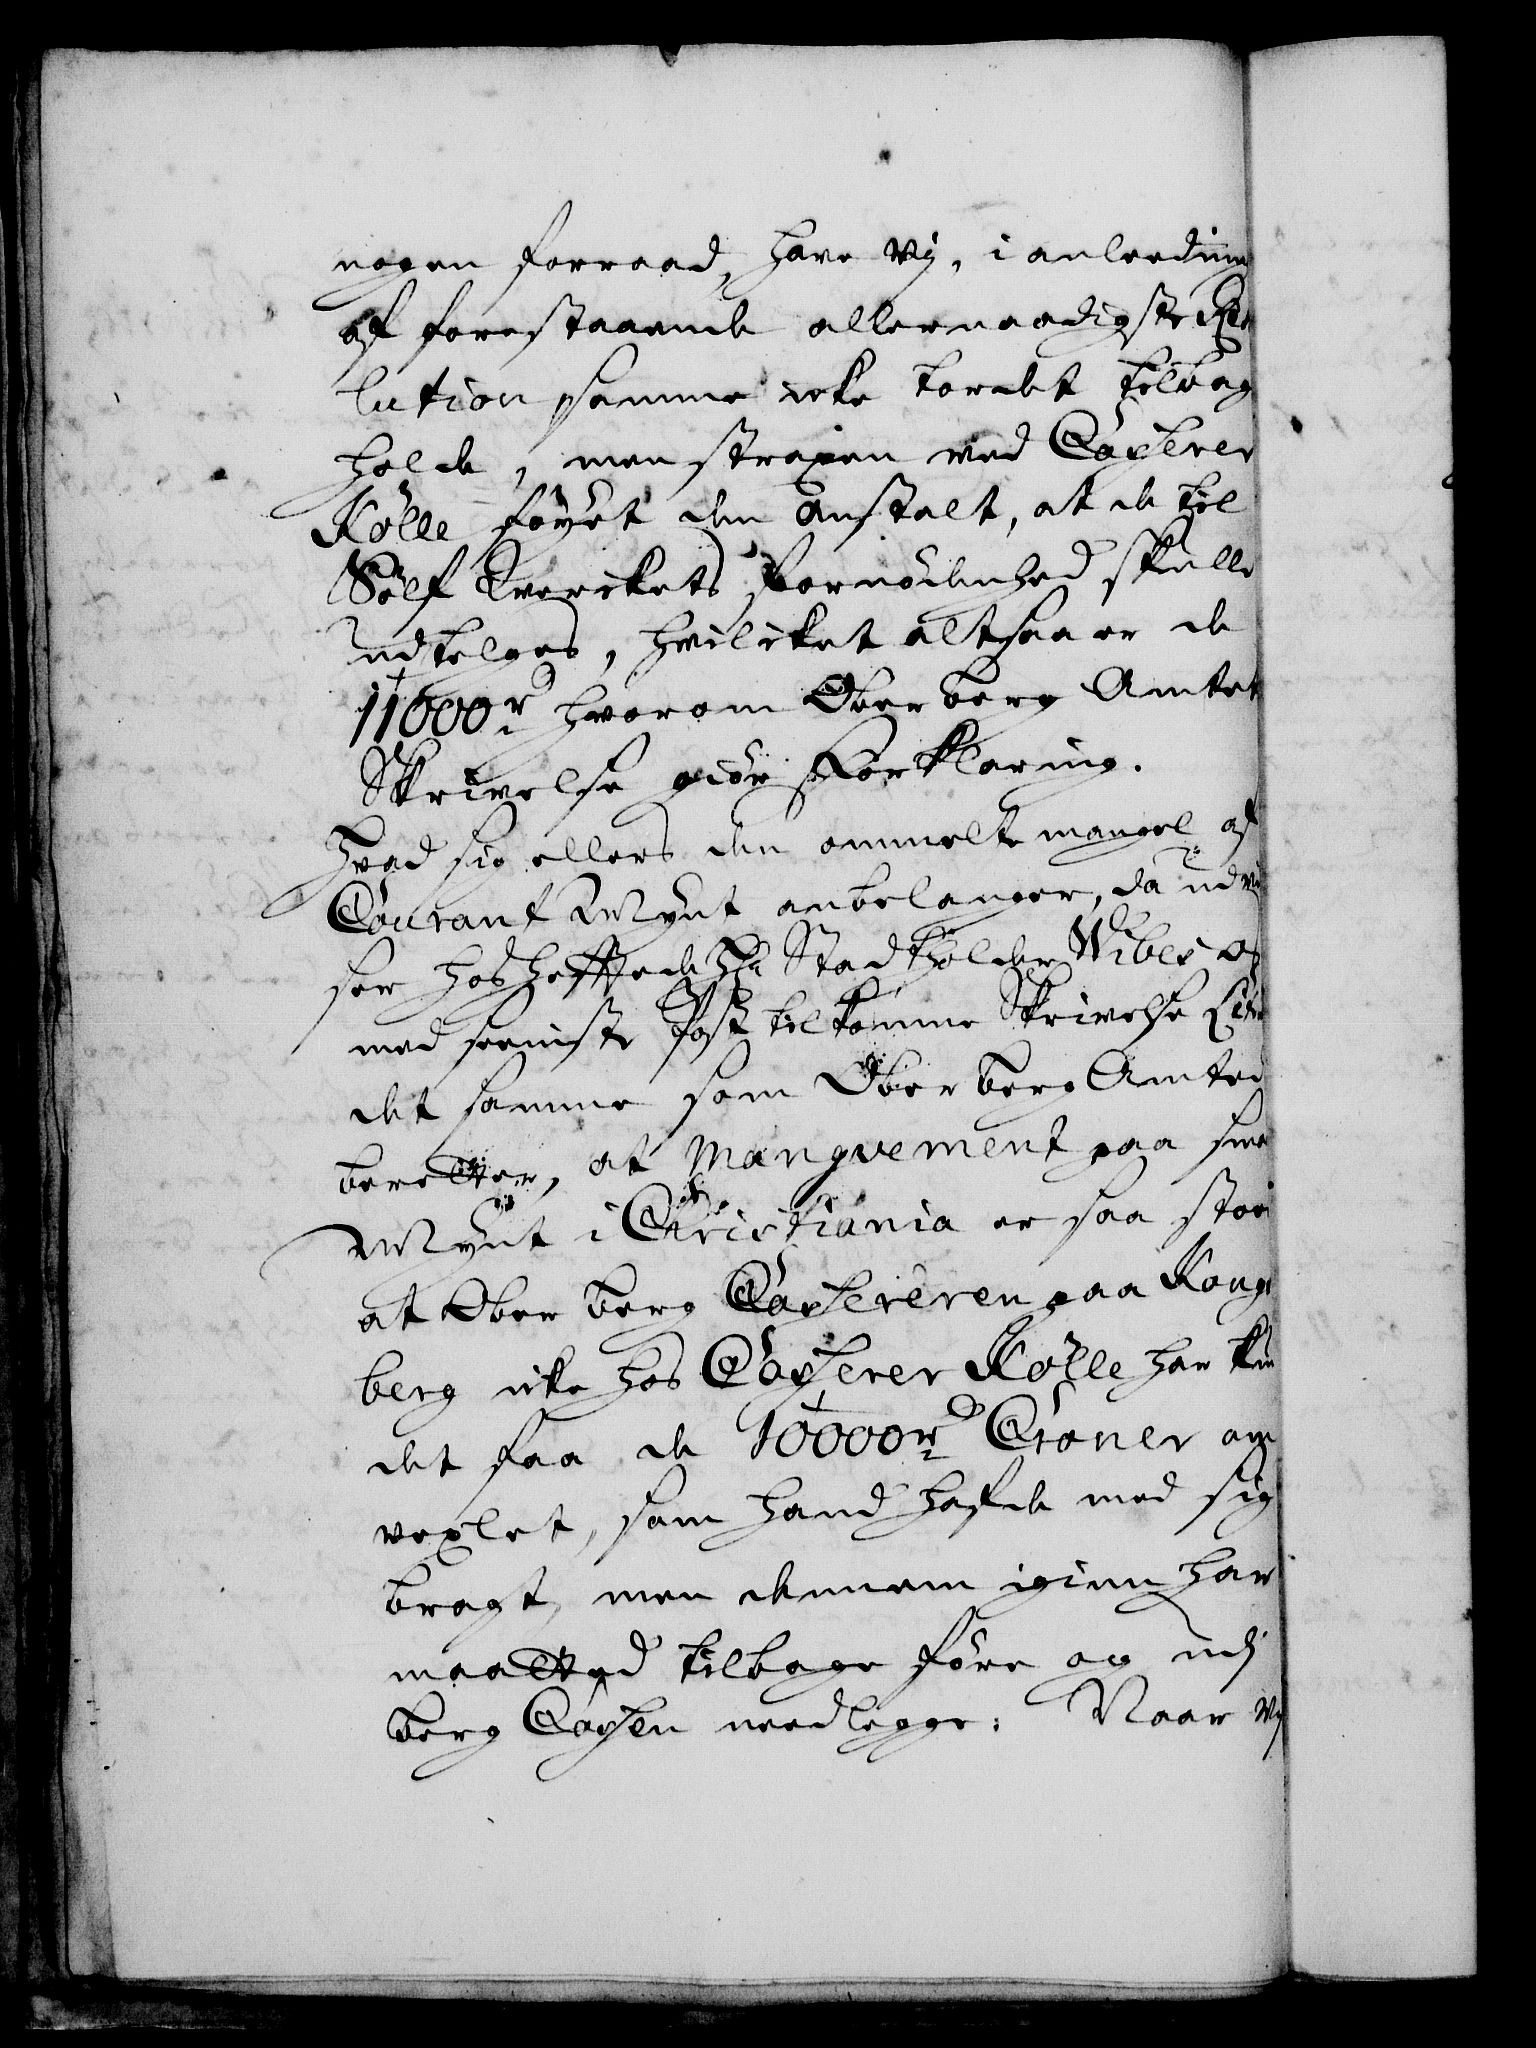 nogen forraad, have Vj, i anleedning
af forestaaende allernaadigste Reso
lution samme icke tordet tilbage
holde, men straxen ved Casserer
Kölle föyet den anstalt, at de til
Sölf Werckets fornödenhed skulle
udtelges, hvilcket altsaa er de
11000 rd hvorom Ober Berg Amtet
Skrivelse giör Forklaring.
Hvad sig ellers den ommelte mangel af
Courant Mynt anbelanger, da udvj
ser hoshefftede Hr Stadtholder Wibes os
med seeniste Post tilkomne Skrivelse
det samme som Ober Berg Amtet
beretter, at Manqvement paa smaa
Mynt i Christiania er saa stoor
at Ober Berg Cassereren paa Kongs
berg icke hos Casserer Kölle har kun
det faa de 10000 rd Croner om
vexlet, som hand hafde med sig
bragt, men dennem igien har
maatted tilbage före og udj
Berg Cassen needlegge: Naar Vj